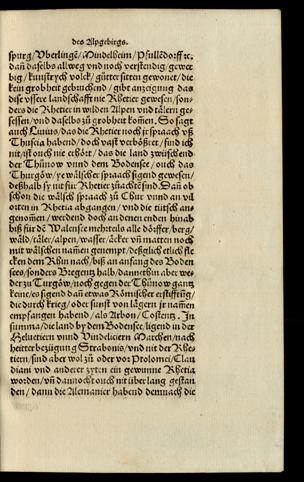 des Alpgebirgs.
spurg/ Vberlingē/ Mindelheim/ Pfullēdorff ꝛc.
dañ daselbs allweg vnd noch verstendig/ gewer
big/ kunstrych volck/ gůtter sitten gewonet/ die
kein grobheit gebuchend/ gibt anzeigung das
dise vssere landschafft nie Rhetier gewesen/ son-
ders die Rhetier in wilden Alpen vnd tälern ge-
sessen/ vnd daselbs zů grobheit komen. So sagt
ouch Liuius/ das die Rhetier noch jr spraach vß
Thuscia habend/ doch vast verbößeret/ sind ich
nit/ ist ouch nie erhört/ das die land zwüschend
der Thůnow vnnd dem Bodensee/ ouch das
Thurgöw/ ye wälscher spraach sigend gewesen/
deßhalb sy nit für Rhetier zůachtē sind. Dañ ob
schon die wälsch spraach zů Chur vnnd an vil
orten in Rhetia abgangen/ vnd die tütsch an-
genomen/ werdend doch an denen enden hinab
biß für dē Walensee mehrteils alle dörffer/ berg/
wäld/ täler/ alpen/ wasser/ äcker vñ matten noch
mit wälschen namen genempt/ deßglich etlich fle
cken dem Rhin nach/ biß an anfang des Boden
sees/ sonders Bregentz halb/ dannethin aber we-
der zů Turgöw/ noch gegen der Thůnow gantz
keine/ es sigend dañ etwas Römischer erstifftūg/
die durch krieg/ oder sunst von lägern jr namen
empfangen habend/ als Arbon/ Costentz. In
summa/ die land by dem Bodensee/ ligend in der
Heluetiern vnnd Vindeliciern Marchen/ nach
heitter bezügung Strabonis/ vnd nit der Rhe-
tiern/ sind aber wol zů oder vor Ptolomei/ Clau
diani vnd anderer zyten ein gewunne Rhetia
worden/ vñ dannocht ouch nit über lang gestan
den/ dann die Alemannier habend demnach die